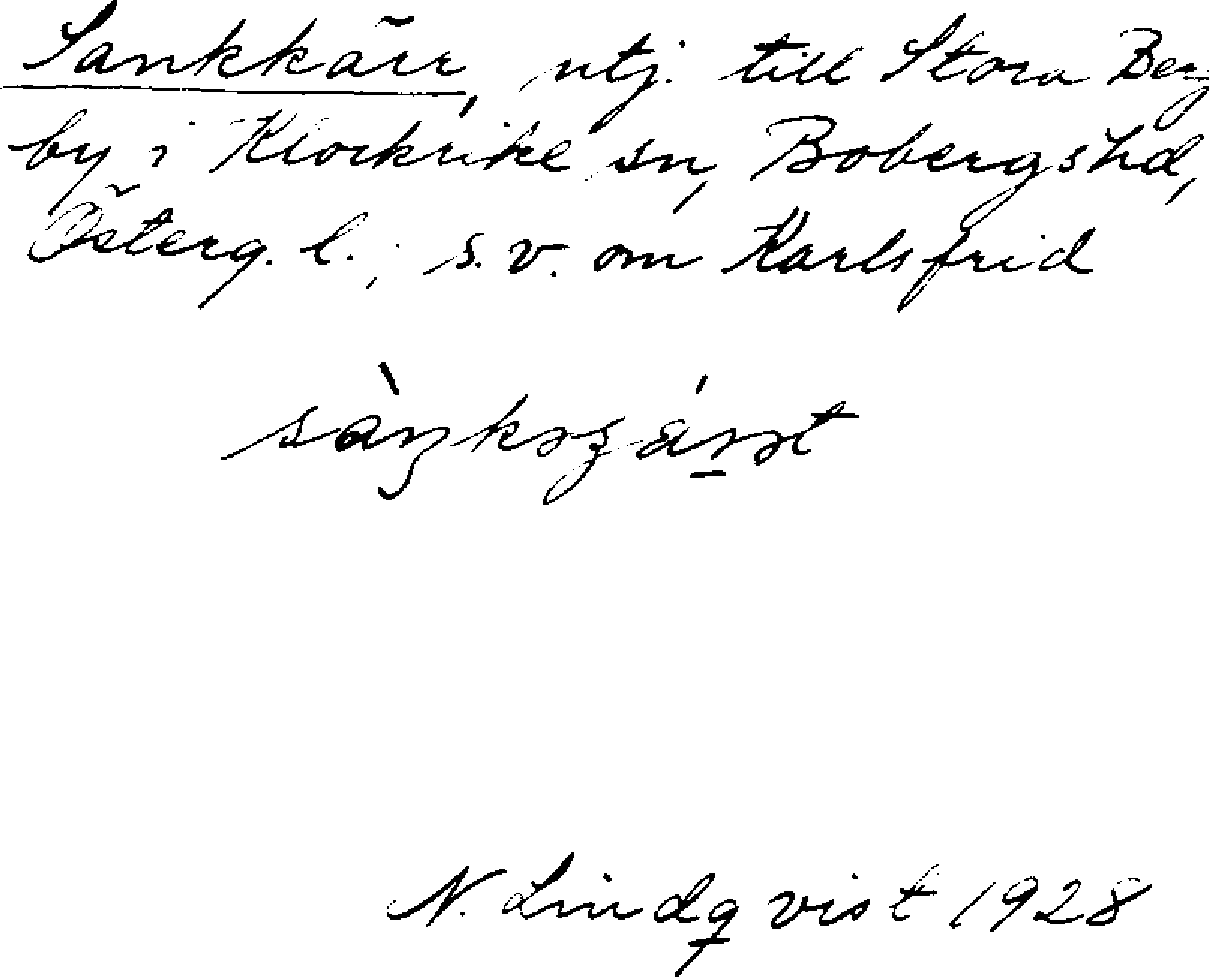 Sankkärr, utj. till Stora Berg
by i Klockrike sn, Bobergs hd,
Österg. l.; s.v. om Karlsfrid
N. Lindqvist 1928